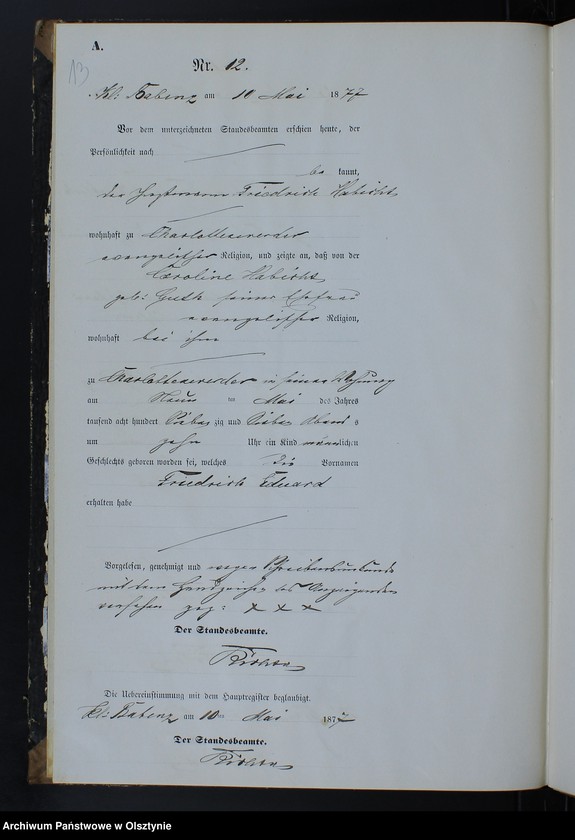 A.
13
Nr. 12.
Kl: Babenz am 10 Mai 1877
Vor dem unterzeichneten Standesbeamten erschien heute, der
Persönlichkeit nach
be kannt,
der Friedrich Habicht
wohnhaft zu Charlottenwerder
evangelischer Religion, und zeigte an, daß von der
Caroline Habicht
geb: Guth seiner Ehefrau
evangelischer Religion,
wohnhaft bei ihm
zu Charlottenwerder in seiner Wohnung
am Neun ten Mai des Jahres
tausend acht hundert Sieben zig und Sieben Abend s
um zehn Uhr ein Kind männlichen
Geschlechts geboren worden sei, welches die Vornamen
Friedrich Eduard
erhalten habe
Vorgelesen, genehmigt und wegen Schreibensunkunde
mit dem Handzeichen des Anzeigenden
versehen gez: x x x
Der Standesbeamte.
Die Uebereinstimmung mit dem Hauptregister beglaubigt.
Kl: Babenz am 10ten Mai 1877
Der Standesbeamte.
Archiwum Państwowe w Olsztynie